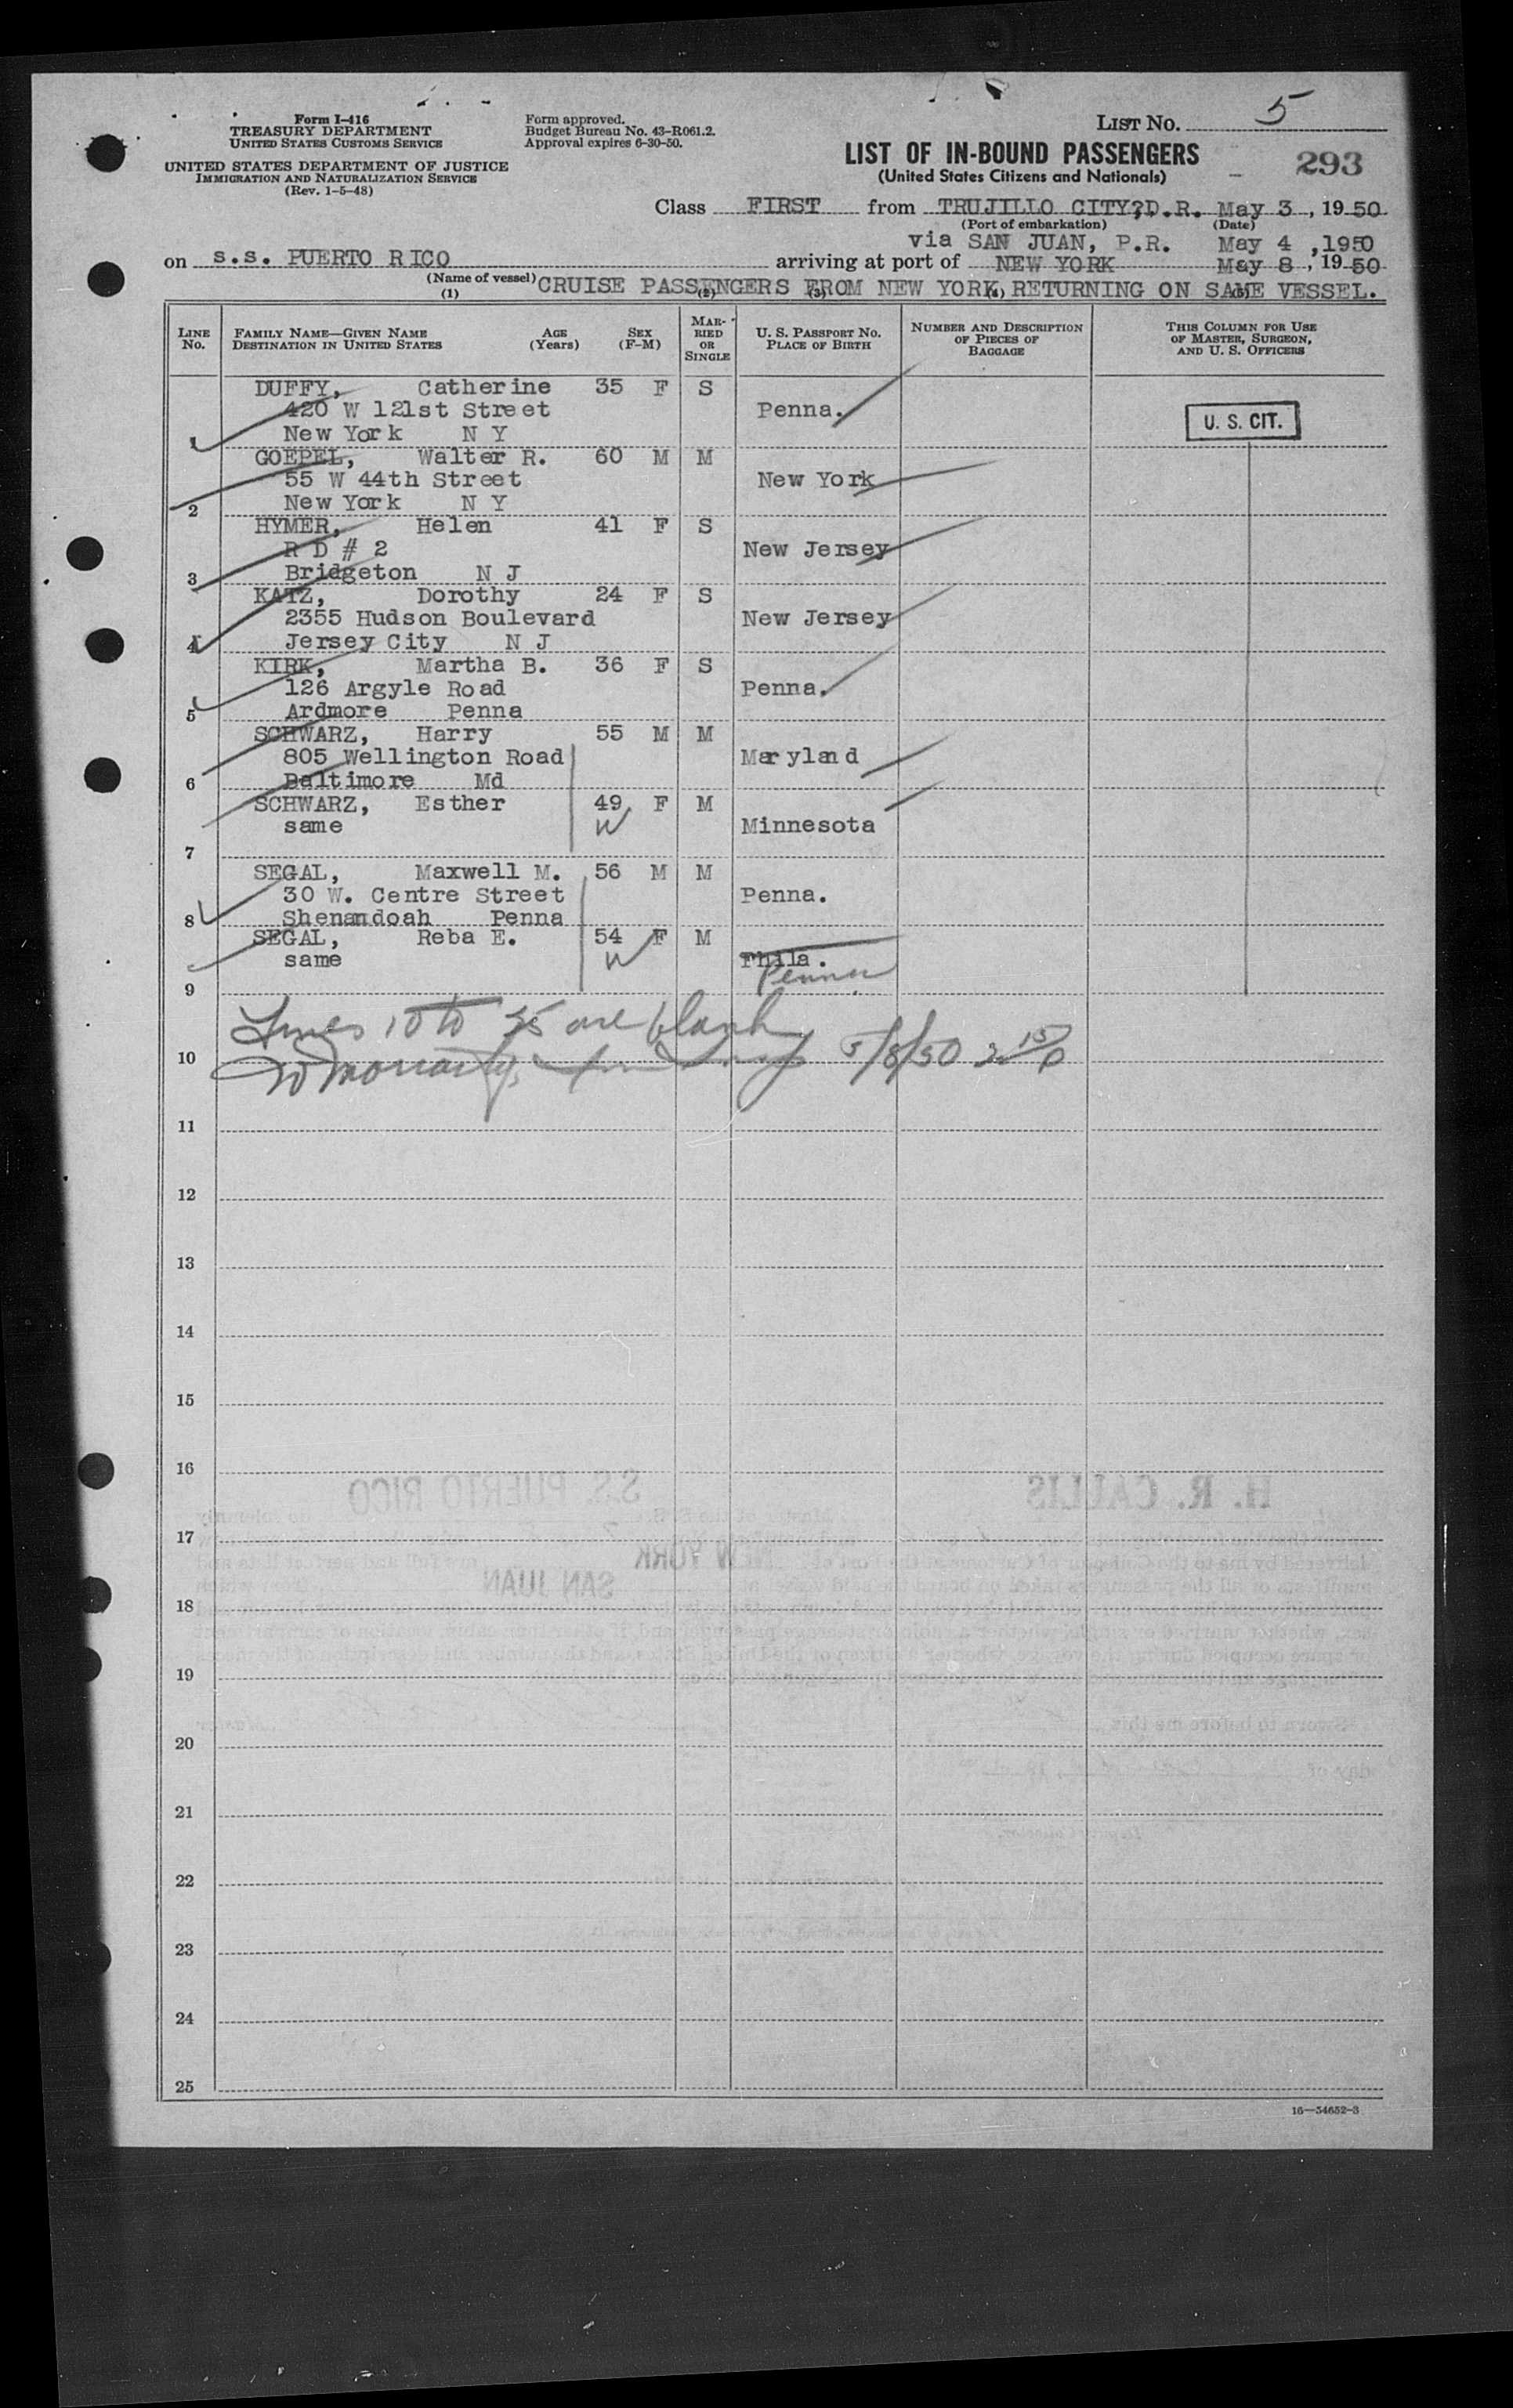 Form I-416
TREASURY DEPARTMENT
UNITED STATES CUSTOMS SERVICE
UNITED STATES DEPARTMENT OF JUSTICE
IMMIGRATION AND NATURALIZATION SERVICE
(Rev. 1-5-48)
Form approved.
Budget Bureau No. 43-R061.2.
Approval expires 6-30-50.
LIST NO. 5
LIST OF IN-BOUND PASSENGERS
(United States Citizens and Nationals)
293
Class FIRST from TRUJILLO CITY?D.R. May 3, 1950
(Port of embarkation) (Date)
via SAN JUAN, P.R. May 4, 1950
on s.s. PUERTO RICO arriving at port of NEW YORK May 8, 1950
(Name of vessel) CRUISE PASSENGERS FROM NEW YORK RETURNING ON SAME VESSEL.
(1) (2) (3) (4) (5)
LINE NO.
FAMILY NAME—GIVEN NAME
DESTINATION IN UNITED STATES
AGE (Years)
SEX (F-M)
MARRIED OR SINGLE
U. S. PASSPORT NO.
PLACE OF BIRTH
NUMBER AND DESCRIPTION OF PIECES OF BAGGAGE
THIS COLUMN FOR USE OF MASTER, SURGEON, AND U. S. OFFICERS
DUFFY, Catherine 35 F S
420 W 121st Street Penna. U. S. CIT.
1 New York N Y
GOEPEL, Walter R. 60 M M
55 W 44th Street New York
2 New York N Y
HYMER, Helen 41 F S
R D # 2 New Jersey
3 Bridgeton N J
KATZ, Dorothy 24 F S
2355 Hudson Boulevard New Jersey
4 Jersey City N J
KIRK, Martha B. 36 F S
126 Argyle Road Penna.
5 Ardmore Penna
SCHWARZ, Harry 55 M M
805 Wellington Road Maryland
6 Baltimore Md
SCHWARZ, Esther 49 F M
same W Minnesota
7
SEGAL, Maxwell M. 56 M M
30 W. Centre Street Penna.
8 Shenandoah Penna
SEGAL, Reba E. 54 F M
same W Phila.
Penna
9
Lines 10 to 25 are blank
10 5/8/50
11
12
13
14
15
16
S.S. PUERTO RICO H. R. CALLIS
17
NEW YORK
SAN JUAN
18
19
20
21
22
23
24
25
16—54652-3